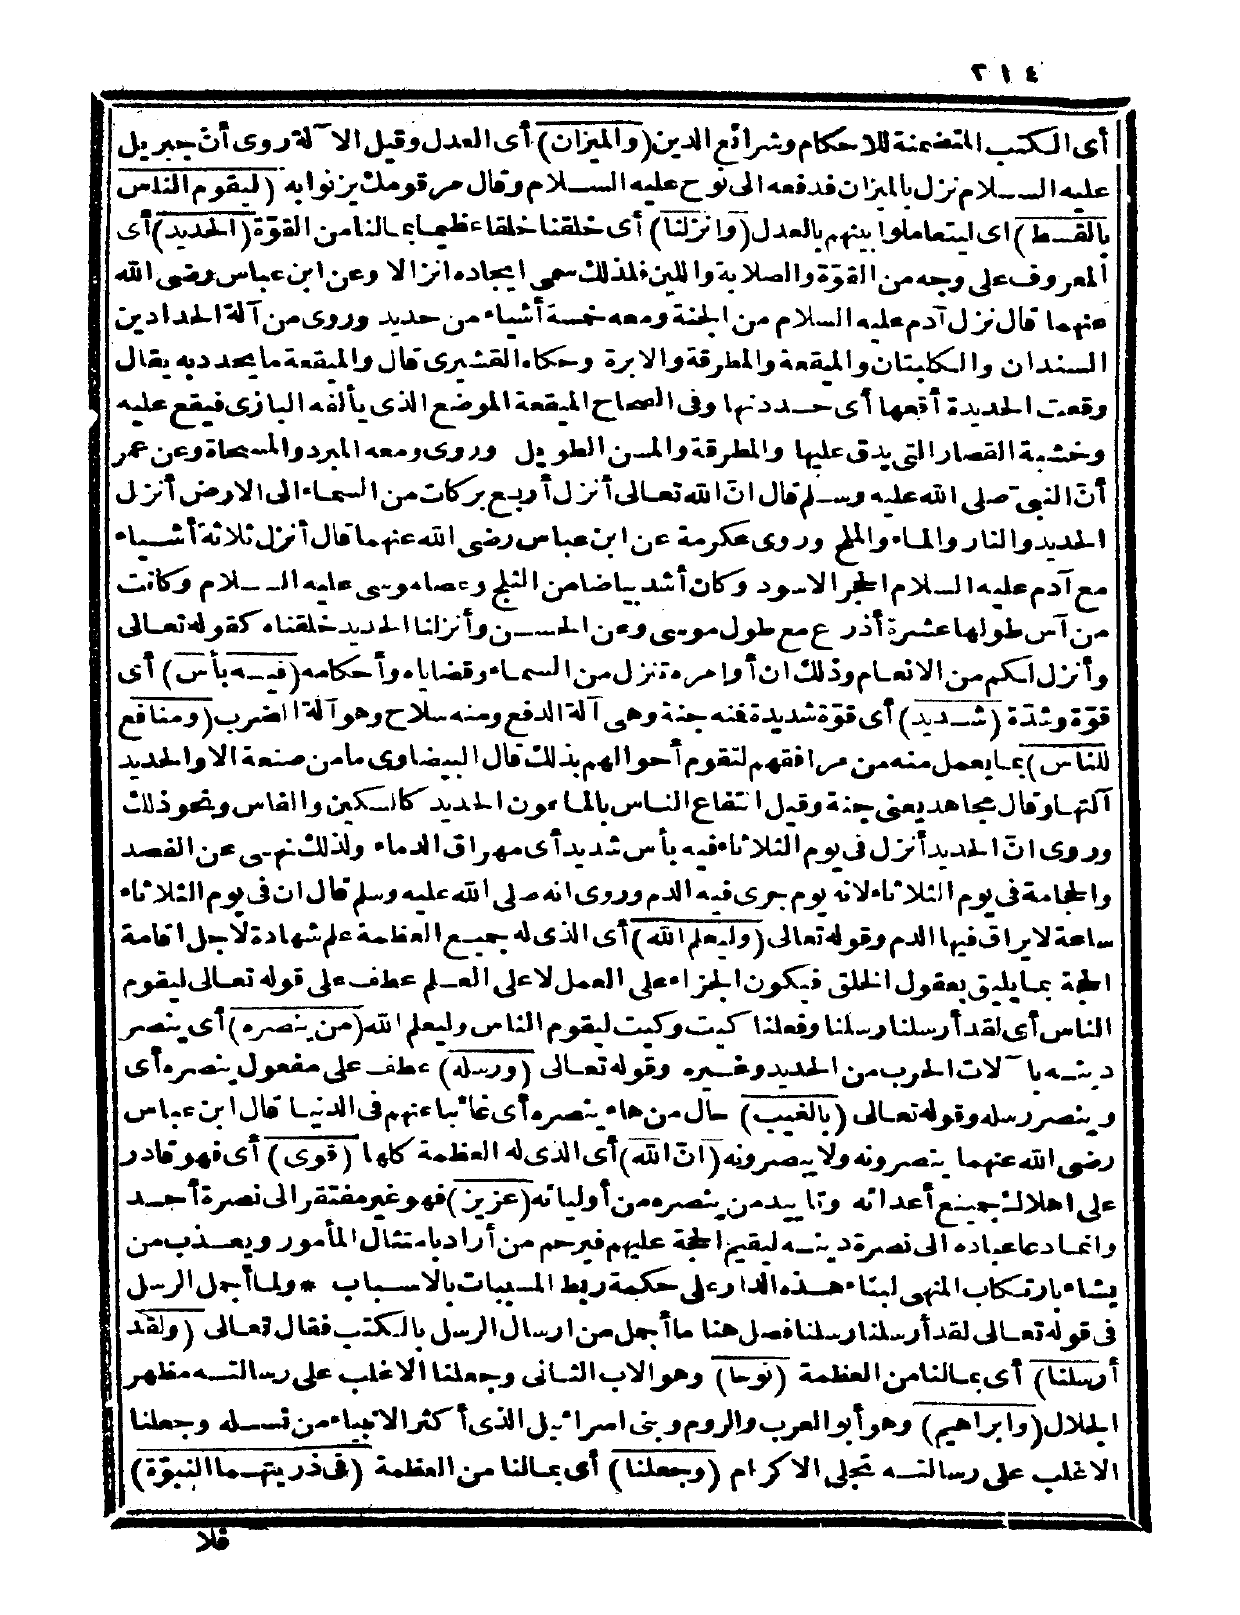 ٢١٤
أى الكتب المتضمنة للاحكام وشرائع الدين (والميزان) أى العدل وقيل الآلة روى أنّ جبريل
عليه السلام نزل بالميزان فدفعه الى نوح عليه السلام وقال مر قومك يزنوا به (ليقوم الناس
بالقسط) اى ليتعاملوا بينهم بالعدل (وانزلنا) أى خلقنا خلقا عظيما بمالنا من القوّة (الحديد) أى
المعروف على وجه من القوّة والصلابة واللين فلذلك سمى ايجاده انزالا وعن ابن عباس رضى الله
عنهما قال نزل آدم عليه السلام من الجنة ومعه خمسة أشياء من حديد وروى من آلة الحدادين
السندان والكلبتان والميقعة والمطرقة والابرة وحكاه القشيرى قال والميقعة ما يحدد به يقال
وقعت الحديدة أقعها أى حددتها وفى الصحاح الميقعة الموضع الذى يألفه البازى فيقع عليه
وخشبة القصار التى يدق عليها والمطرقة والمسن الطويل وروى ومعه المبرد والمسحاة وعن عمر
أنّ النبىّ صلى الله عليه وسلم قال انّ الله تعالى أنزل أربع بركات من السماء الى الارض أنزل
الحديد والنار والماء والملح وروى عكرمة عن ابن عباس رضى الله عنهما قال أنزل ثلاثة أشياء
مع آدم عليه السلام الحجر الاسود وكان أشد بياضا من الثلج وعصا موسى عليه السلام وكانت
من آس طولها عشرة أذرع مع طول موسى وعن الحسن وأنزلنا الحديد خلقناه كقوله تعالى
وأنزل لكم من الانعام وذلك ان أوامره تنزل من السماء وقضاياه وأحكامه (فيه بأس) أى
قوّة وشدّة (شديد) أى قوّة شديدة فمنه جنة وهى آلة الدفع ومنه سلاح وهو آلة الضرب (ومنافع
للناس) بما يعمل منه من مرافقهم لتقوم أحوالهم بذلك قال البيضاوى ما من صنعة الا والحديد
آلتها وقال مجاهد يعنى جنة وقيل انتفاع الناس بالماعون الحديد كالسكين والفاس ونحو ذلك
وروى انّ الحديد أنزل فى يوم الثلاثاء فيه بأس شديد أى مهراق الدماء ولذلك نهى عن الفصد
والحجامة فى يوم الثلاثاء لانه يوم جرى فيه الدم وروى انه صلى الله عليه وسلم قال ان فى يوم الثلاثاء
ساعة لا يراق فيها الدم وقوله تعالى (وليعلم الله) أى الذى له جميع العظمة علم شهادة لاجل اقامة
الحجة بما يليق بعقول الخلق فيكون الجزاء على العمل لا على العلم عطف على قوله تعالى ليقوم
الناس أى لقد أرسلنا رسلنا وفعلنا كيت وكيت ليقوم الناس وليعلم الله (من ينصره) أى ينصر
دينه بآلات الحرب من الحديد وغيره وقوله تعالى (ورسله) عطف على مفعول ينصره أى
وينصر رسله وقوله تعالى (بالغيب) حال من هاء ينصره أى غائبا عنهم فى الدنيا قال ابن عباس
رضى الله عنهما ينصرونه ولا يبصرونه (انّ الله) أى الذى له العظمة كلها (قوى) أى فهو قادر
على اهلاك جميع أعدائه وتأييد من ينصره من أوليائه (عزيز) فهو غير مفتقر الى نصرة أحد
وانما دعا عباده الى نصرة دينه ليقيم الحجة عليهم فيرحم من أراد بامتثال المأمور ويعذب من
يشاء بارتكاب المنهى لبناء هذه الدار على حكمة ربط المسببات بالاسباب * ولما أجمل الرسل
فى قوله تعالى لقد أرسلنا رسلنا فصل هنا ما أجمل من ارسال الرسل بالكتب فقال تعالى (ولقد
أرسلنا) أى بمالنا من العظمة (نوحا) وهو الاب الثانى وجعلنا الاغلب على رسالته مظهر
الجلال (وابراهيم) وهو أبو العرب والروم وبنى اسرائيل الذى أكثر الانبياء من نسله وجعلنا
الاغلب على رسالته تجلى الاكرام (وجعلنا) أى بمالنا من العظمة (فى ذريتهما النبوّة)
فلا